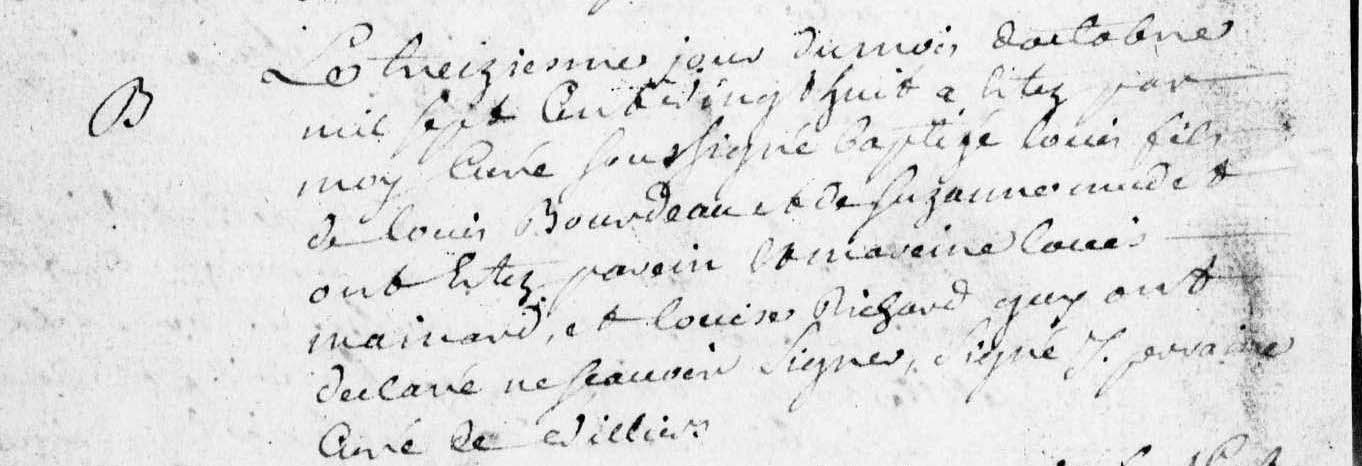 B
Le treizieme jour du mois d'octobre
mil sept cent vingt huit a Estez par
moy Curé soussigné baptizé louis fils
de louis Bourdeau et de Suzanne mudet
ont Estez parein et mareine louis
mainard, et louise Richard quy ont
declaré ne scauoir signer, signé J.
Curé de Villiers